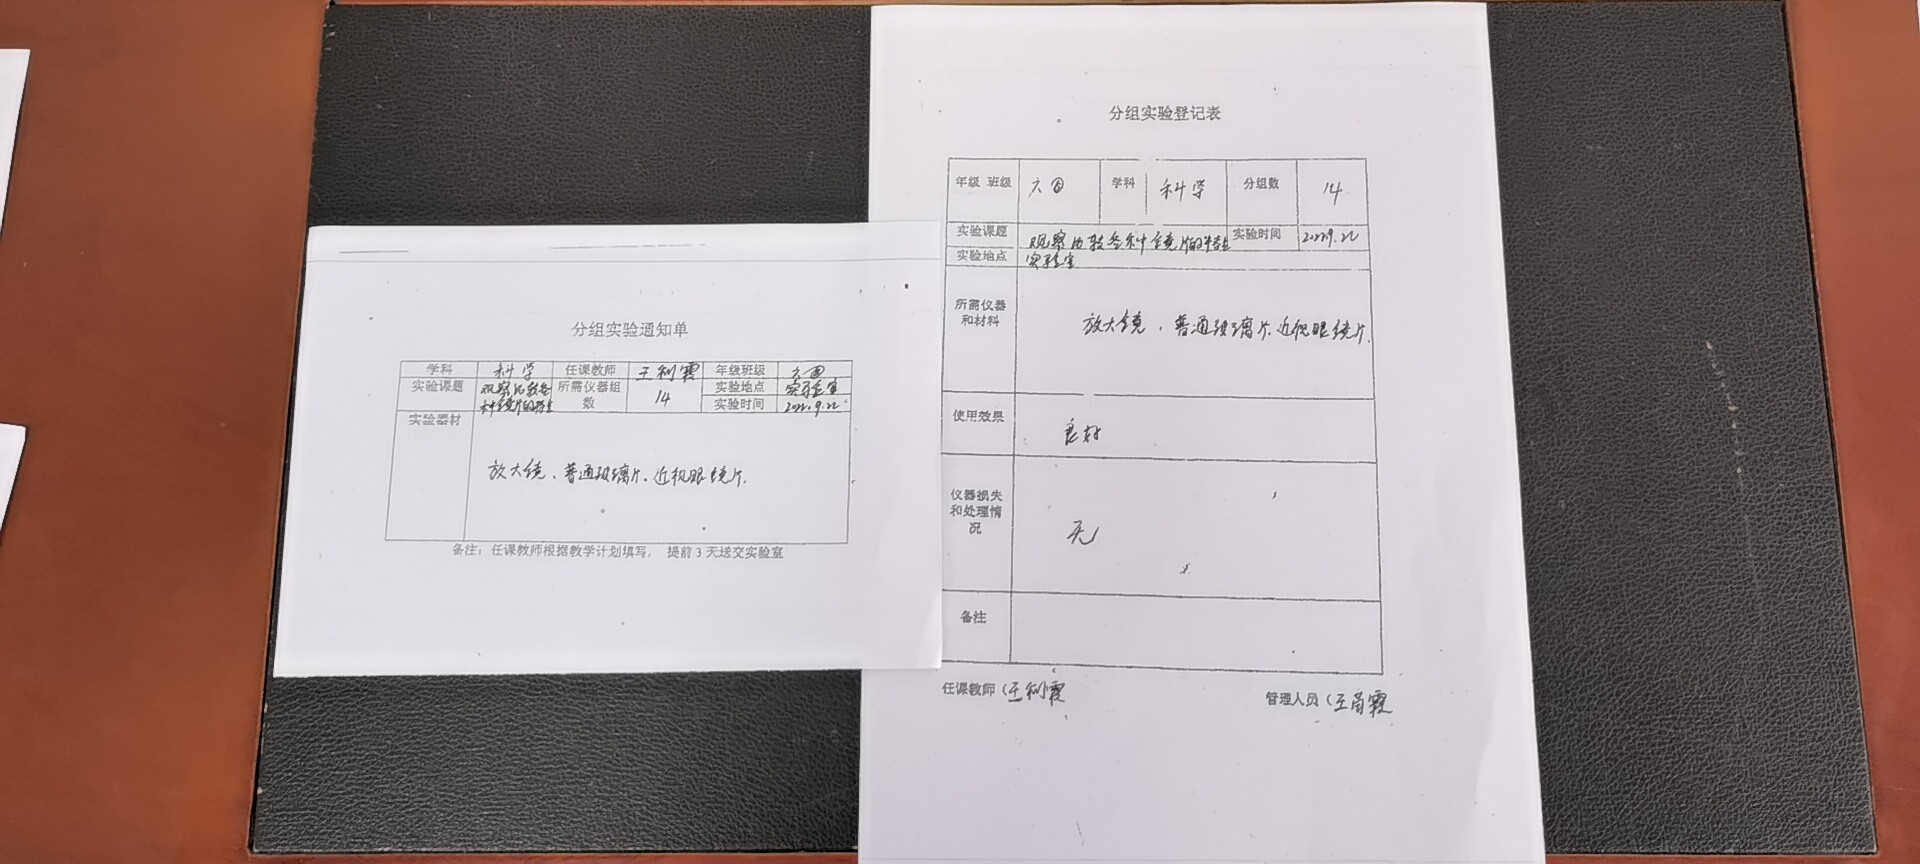 分组实验通知单
学科 科学 任课教师 王利霞 年级班级 六四
实验课题 观察比较各种镜片的特点 所需仪器组数 14 实验地点 实验室
实验时间 2022.9.22
实验器材
放大镜、普通玻璃片、近视眼镜片.
备注：任课教师根据教学计划填写， 提前 3 天送交实验室
分组实验登记表
年级 班级 六四 学科 科学 分组数 14
实验课题 观察比较各种镜片的特点 实验时间 2022.9.22
实验地点 实验室
所需仪器
和材料
放大镜、普通玻璃片、近视眼镜片.
使用效果 良好
仪器损失
和处理情
况
无
备注
任课教师（王利霞 管理人员（王